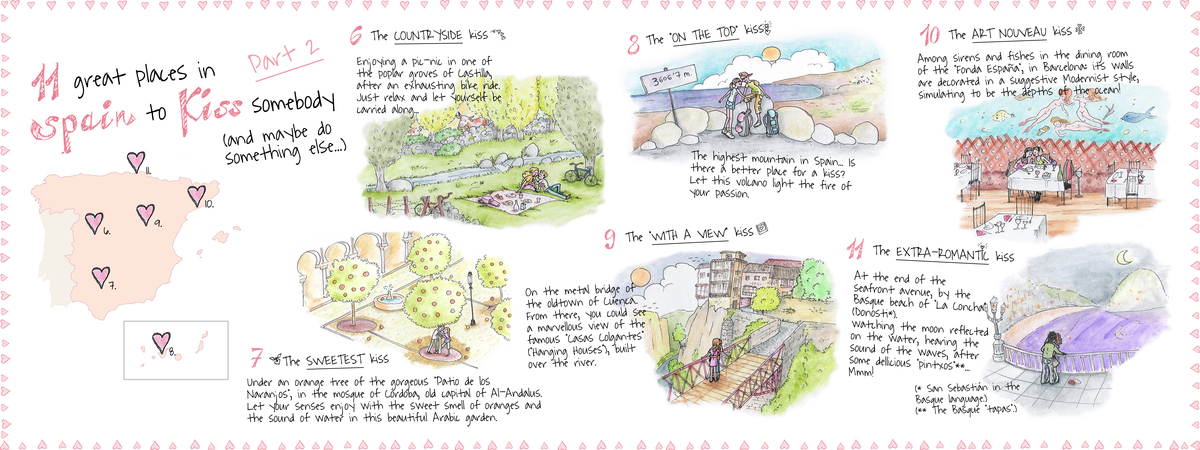 11 great places in
Spain to Kiss somebody
(and maybe do
something else...)
Part 2
11.
10.
6.
9.
7.
8.
6 The COUNTRYSIDE kiss
Enjoying a pic-nic in one of
the poplar groves of Castilla,
after an exhausting bike ride.
Just relax and let yourself be
carried along...
7 The SWEETEST kiss
Under an orange tree of the gorgeous "Patio de los
Naranjos", in the mosque of Córdoba, old capital of Al-Andalus.
Let your senses enjoy with the sweet smell of oranges and
the sound of water in this beautiful Arabic garden.
8 The "ON THE TOP" kiss
3606'7 m.
The highest mountain in Spain... Is
there a better place for a kiss?
Let this volcano light the fire of
your passion.
9 The "WITH A VIEW" kiss
On the metal bridge of
the oldtown of Cuenca.
From there, you could see
a marvellous view of the
famous "Casas Colgantes"
("Hanging Houses"), built
over the river.
10 The ART NOUVEAU kiss
Among sirens and fishes in the dining room
of the "Fonda España", in Barcelona: it's walls
are decorated in a suggestive Modernist style,
simulating to be the depths of the ocean!
11 The EXTRA-ROMANTIC kiss
At the end of the
seafront avenue, by the
Basque beach of "La Concha"
(Donósti*).
Watching the moon reflected
on the water, hearing the
sound of the waves, after
some dellicious "pintxos"**...
Mmm!
(* San Sebastián in the
Basque language.)
(** The Basque "tapas".)